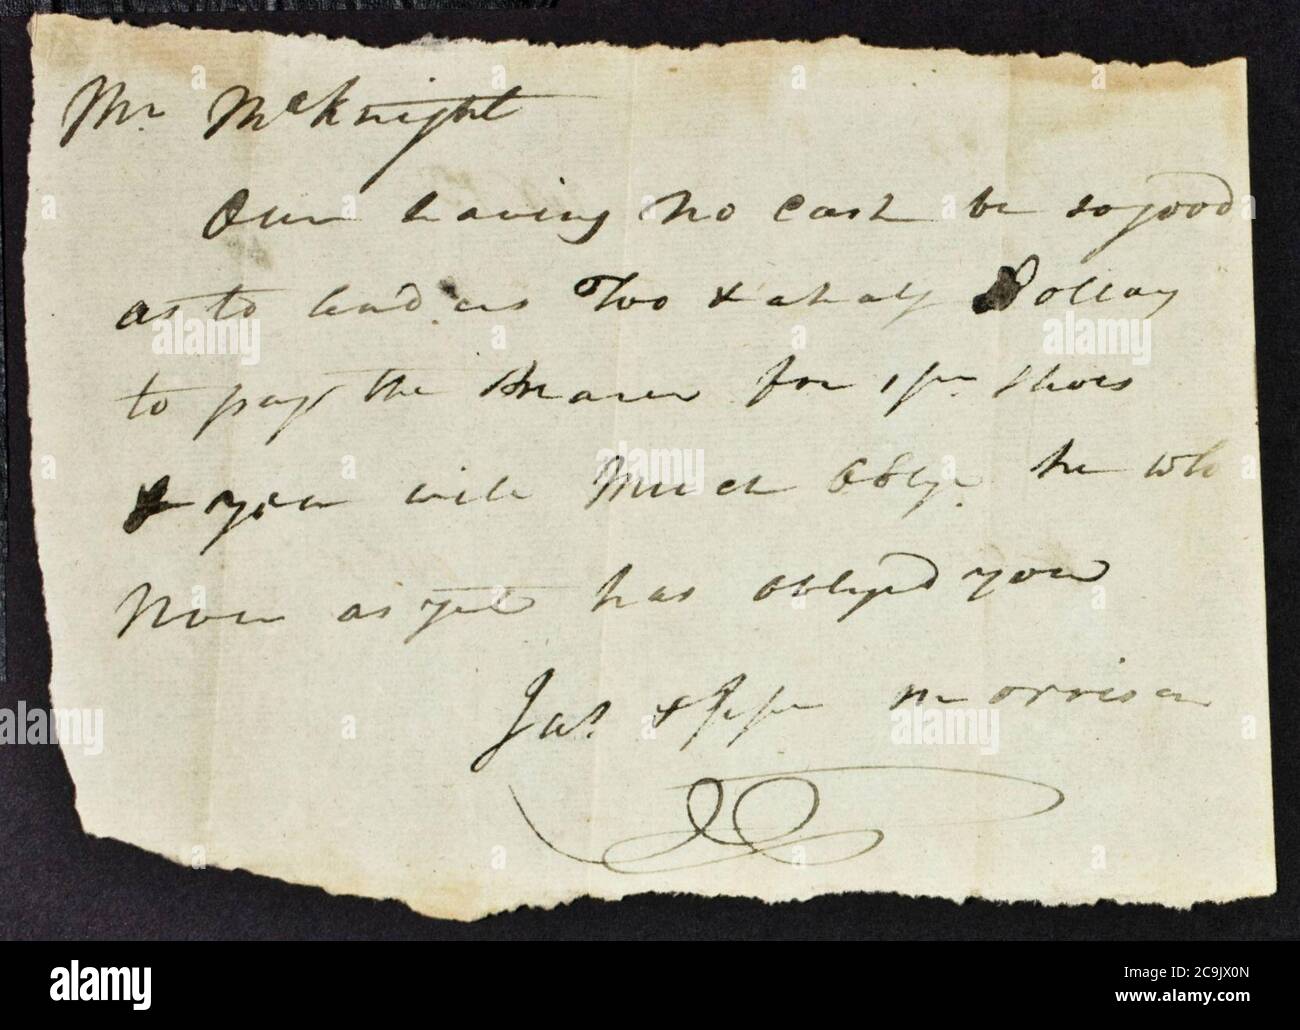 Mr. McKnight
Our having no Cash be so good
as to lend us Two & a half Dollars
to pay the Bearer for 1 pr Shoes
& you will Much Oblige he who
Never as yet has obliged you
Jas. & Morrison
alamy
Image ID: 2C9JX0N
www.alamy.com